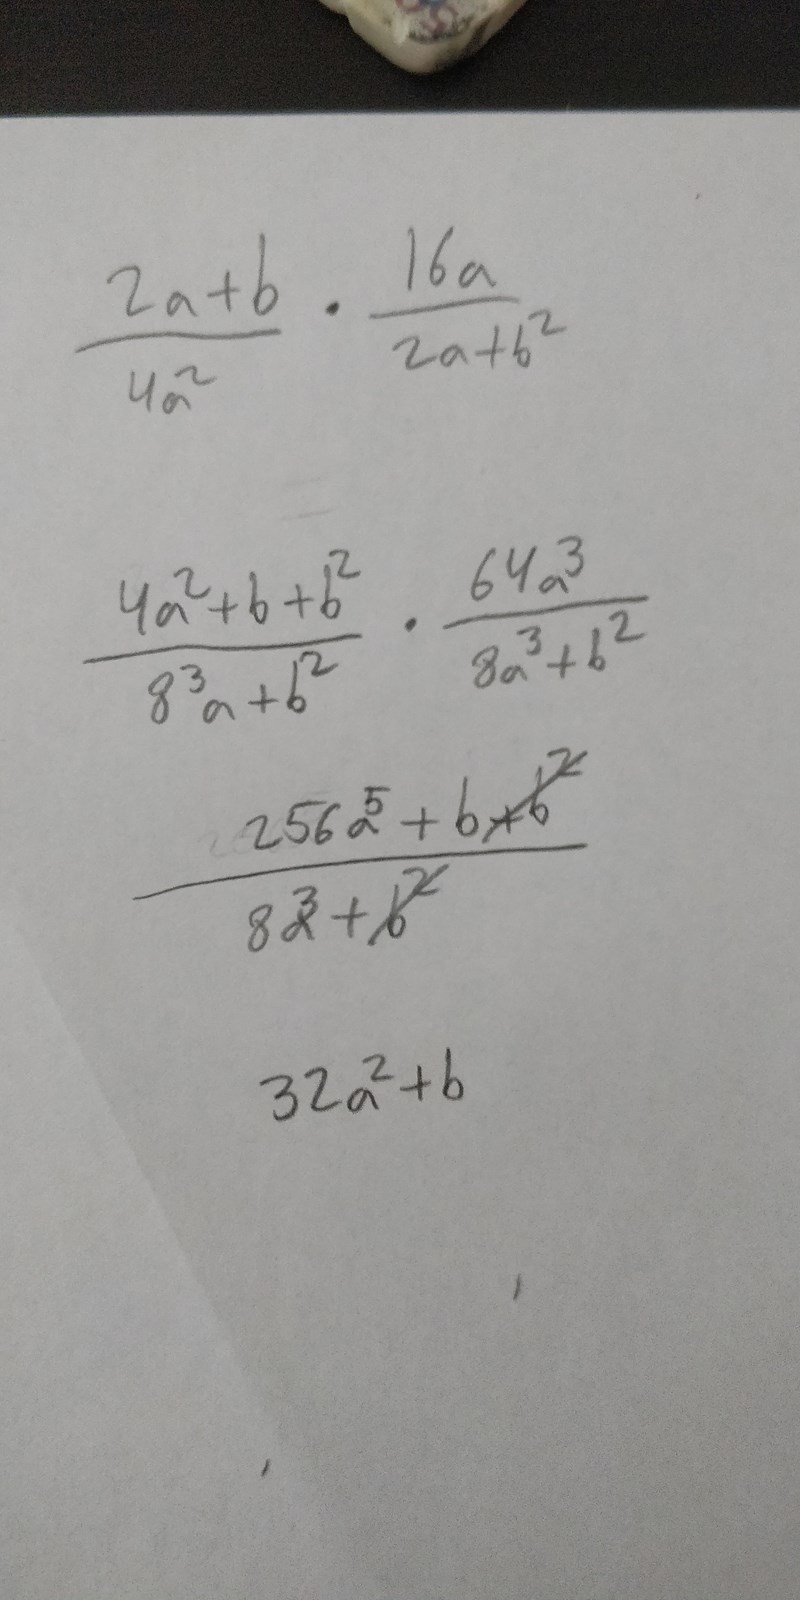 2a+b / 4a² · 16a / 2a+b²
4a²+b+b² / 8³a+b² · 64a³ / 8a³+b²
256a⁵+b+b² / 8a³+b²
32a²+b